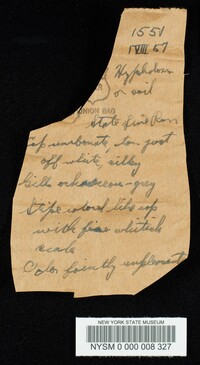 1551
VIII 67
Hypholoma
on soil
UNION BAG
State fire Ran
Cap umbonate, tan, just
off white, silky
Gills ochraceous-grey
Stipe colored like cap
with fine whitish
scales
Color faintly unpleasant
NEW YORK STATE MUSEUM
NYSM 0 000 008 327